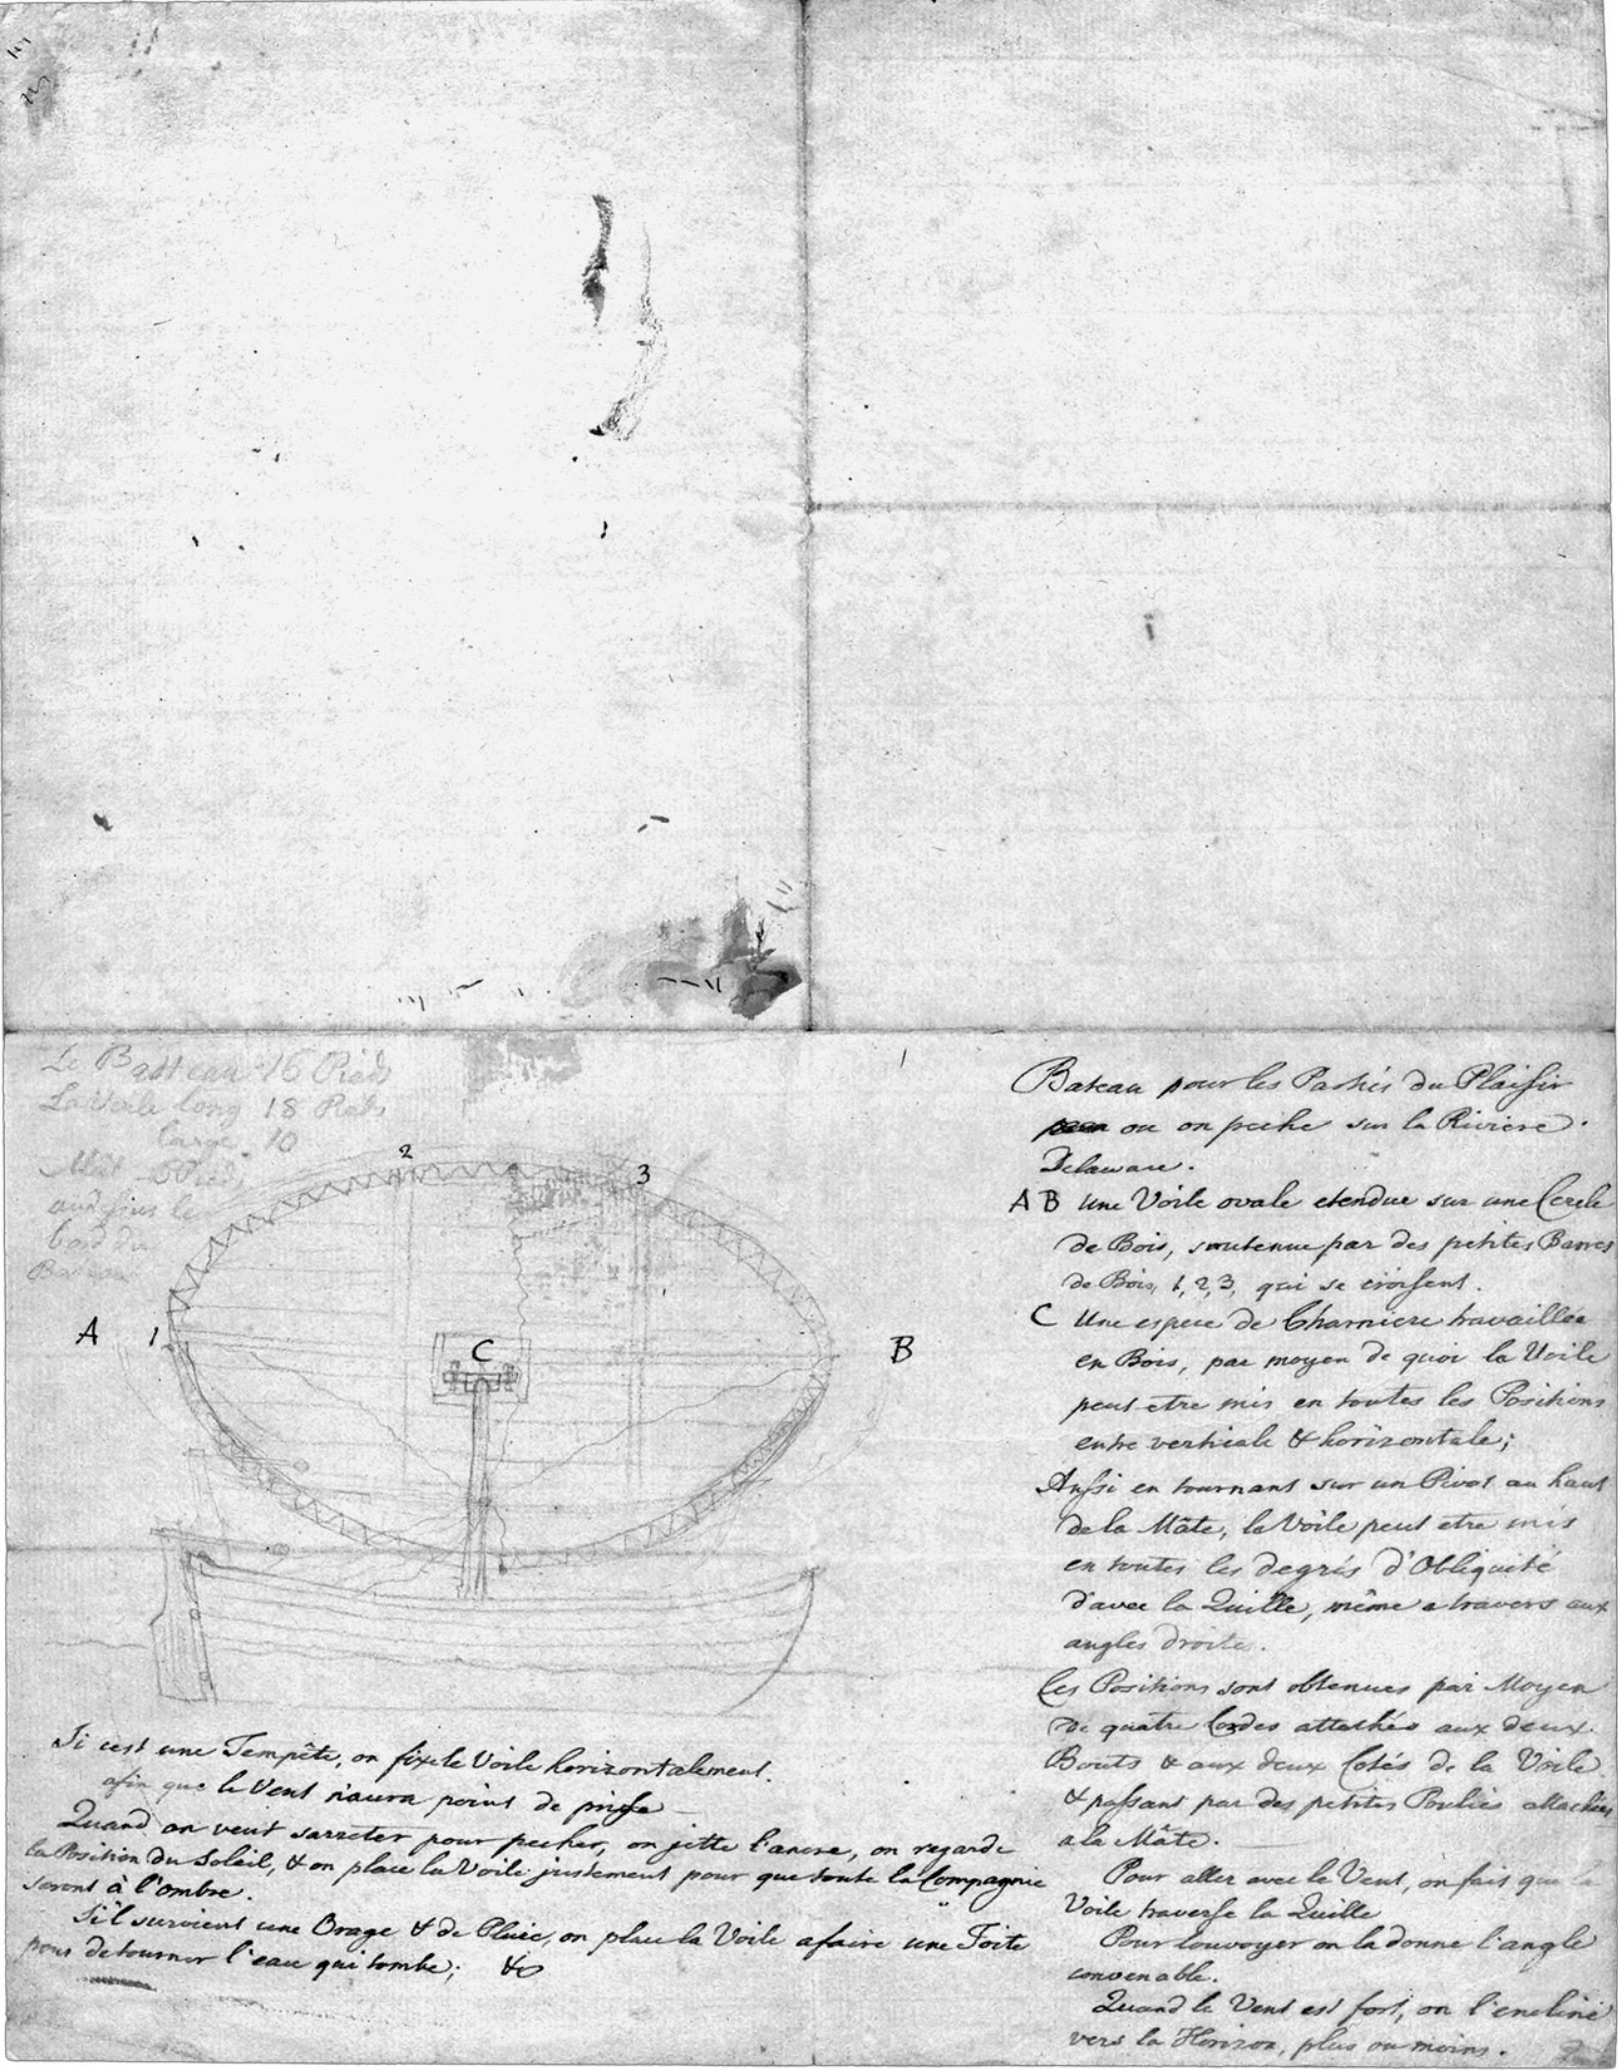 Le Batteau 16 Pieds
La Voile long 18 Pieds
large 10
Mât 5 Pieds
audessus le
bord du
Bateau
2
3
A
1
C
B
Si cest une Tempête, on fixe le Voile horizontalement.
afin que le Vent n'aura point de prise
Quand on veut sarreter pour pecher, on jette l'ancre, on regarde
la Position du Soleil, & on place la Voile justement pour que toute la Compagnie
seront à l'ombre.
Si'l survient une Orage & de Pluie, on place la Voile afaire une Toite
pour detourner l'eau qui tombe; &c
Bateau pour les Parties du Plaisir
ou on peche sur la Riviere
Delaware.
A B Une Voile ovale etendue sur une Cercle
de Bois, soutenue par des petites Barres
de Bois, 1, 2, 3, qui se croisent.
C Une espece de Charniere travaillée
en Bois, par moyen de quoi la Voile
peut etre mis en toutes les Positions
entre verticale & horizontale;
Aussi en tournant sur un Pivot au haut
de la Mâte, la Voile peut etre mis
en toutes les degrés d'Obliquité
d'avec la Quille, même a travers aux
angles droites.
Ces Positions sont obtenues par Moyen
de quatre Cordes attachés aux deux
Bouts & aux deux Cotés de la Voile
& passant par des petites Poulies attachées
a la Mâte.
Pour aller avec le Vent, on fait que la
Voile traverse la Quille
Pour louvoyer on la donne l'angle
convenable.
Quand le Vent est fort, on l'encline
vers la Horizon, plus ou moins.